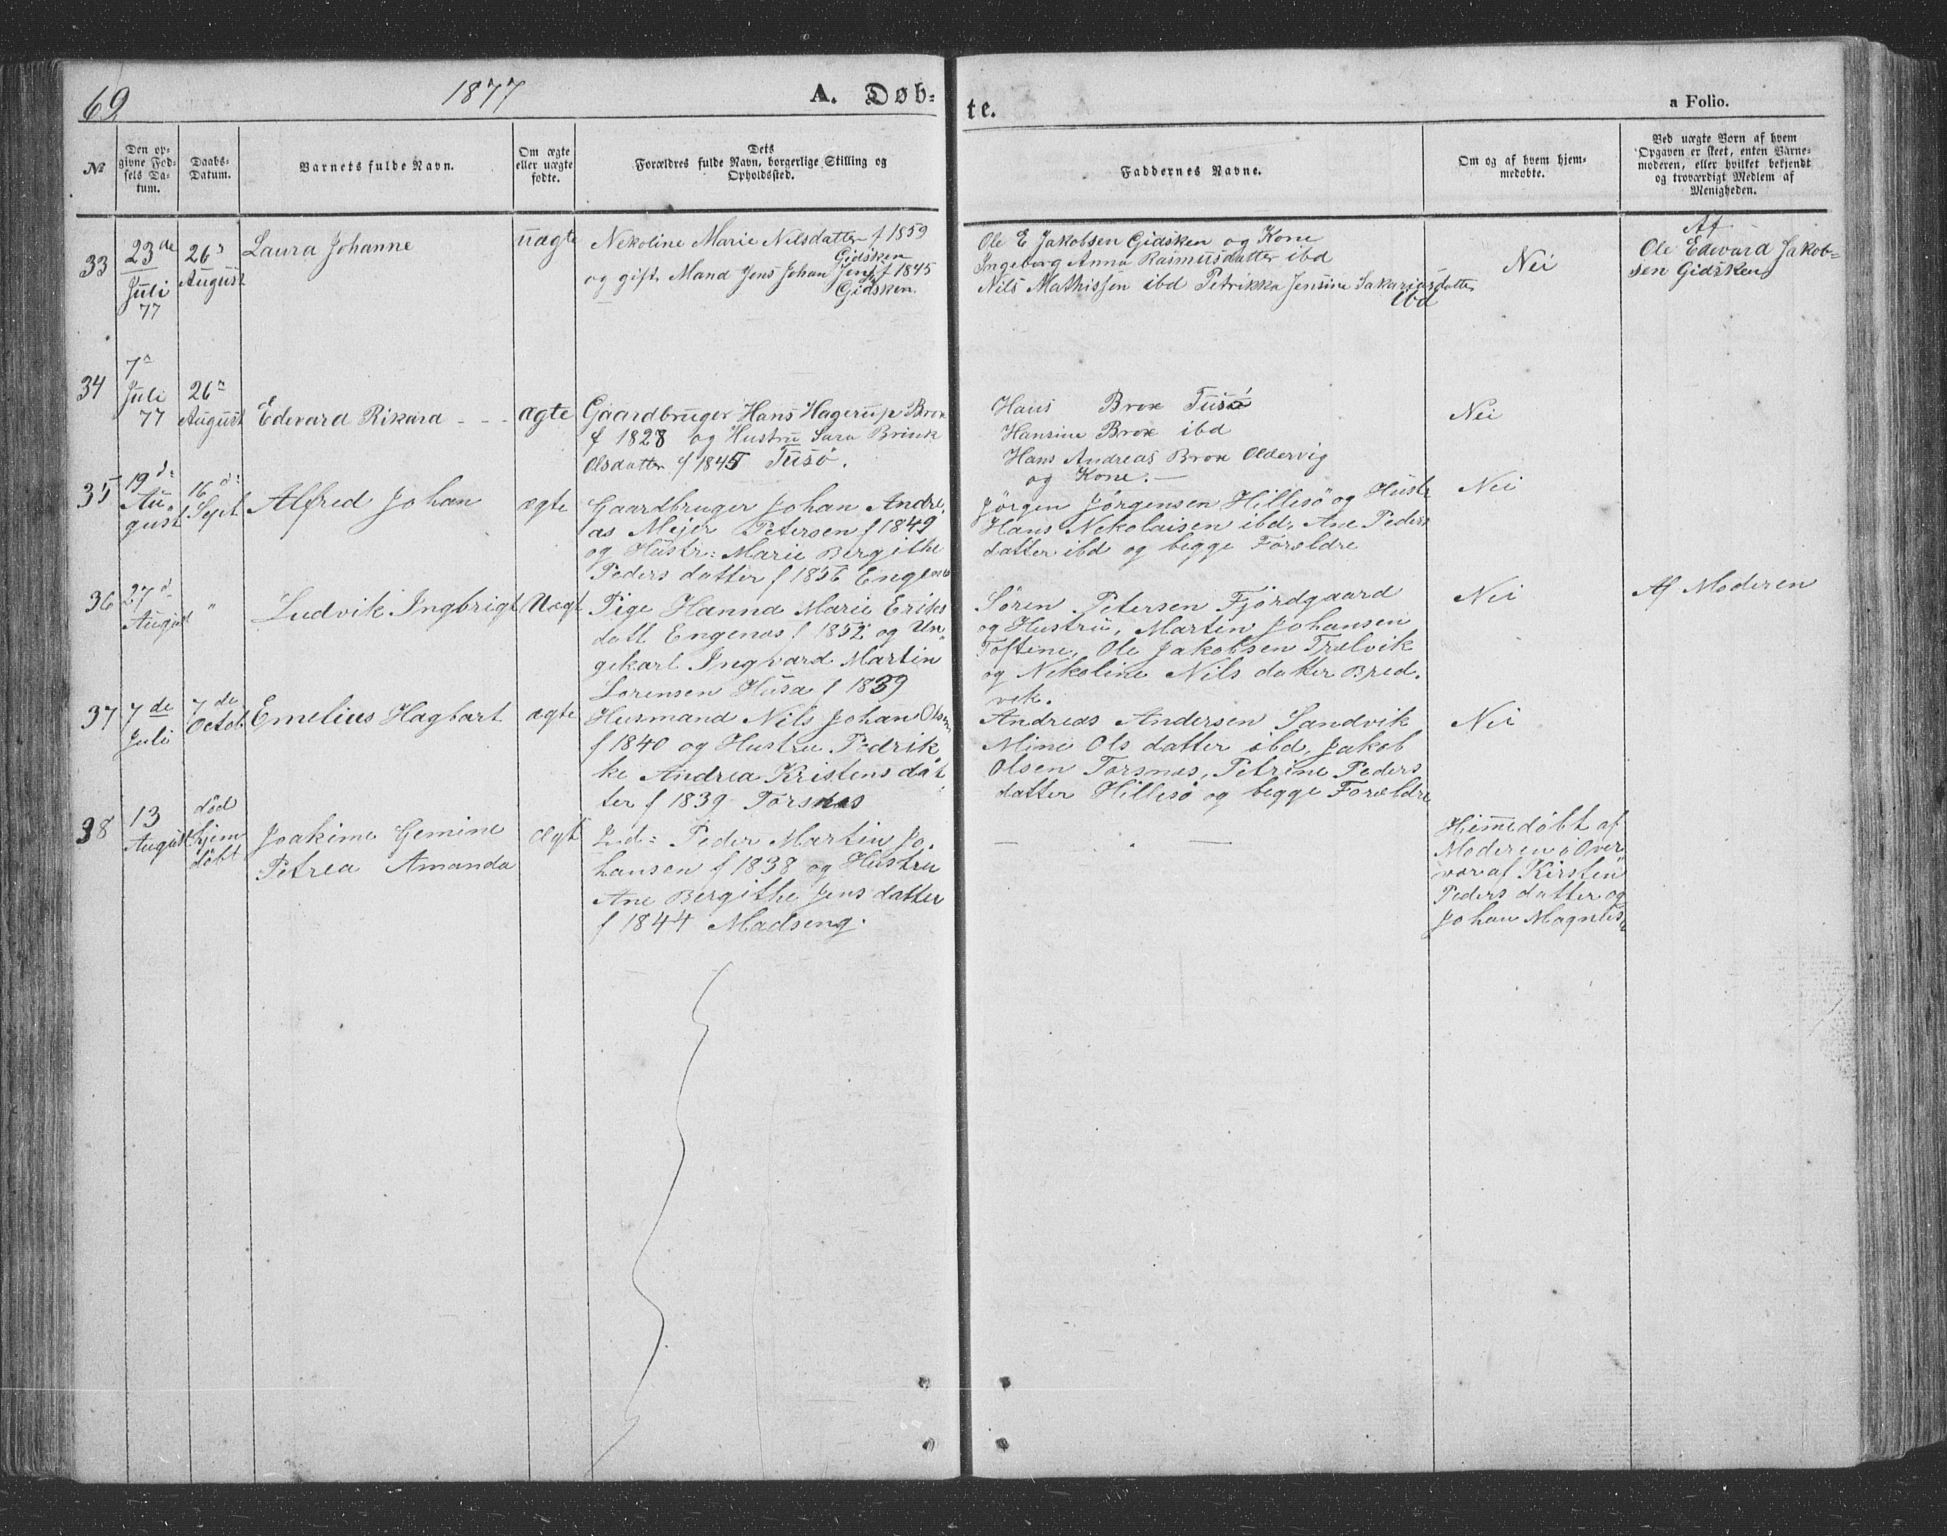 69
1877
A. Døb-
te.
a Folio.
No
Den op-
givne Fød-
sels Da-
tum.
Daabs-
Datum.
Barnets fulde Navn.
Om ægte
eller uægte
fødte.
Dets
Forældres fulde Navn, borgerlige Stilling og
Opholdssted.
Faddernes Navne.
Om og af hvem hjem-
medøbte.
Ved uægte Børn af hvem
Opgaven er skeet, enten Barne-
moderen, eller hvilket bekjendt
og troværdigt Medlem af
Menigheden.
33
23de
Juli
77
26
August
Laura Johanne
uægte
Nekoline Marie Nilsdatter f 1859
Gidsken
og gift Mand Jens Johan Jens f 1845
Gidsken
Ole E Jakobsen Gidsken og Kone
Ingeborg Anna Rasmusdatter ibd
Nils Mathissen ibd Petrikka Jensine Sakariasdatter
ibd
Nei
Af
Ole Edevard Jakob=
sen Gidsken
34
7
Juli
77
26
August
Edevard Rikard - - -
ægte
Gaardbruger Hans Hagerup Brox
f 1828 og Hustru Sara Brink
Olsdatter f 1845 Tusø.
Hans Brox Tusø
Hansine Brox ibd
Hans Andreas Brox Oldervig
og Kone. —
Nei
35
19d:
Au
gust
16d:
Sept
Alfred Johan
ægte
Gaardbruger Johan Andre
as Mejer Petersen f 1849
og Hustr: Marie Bergithe
Peders datter f 1856 Engenes
Jørgen Jørgensen Hillesø og Hustr
Hans Nekolaisen ibd, Ane Peders
datter ibd og begge Forældre
Nei
36
27d
August
"
Ludvik Ingbrigt
Uægt
Pige Hanna Marie Eriks
datt Engenæs f 1852 og Un-
gekarl Ingvard Martin
Lorensen Husø f 1839
Søren Petersen Fjordgaard
og Hustru, Martin Johansen
Toftene, Ole Jakobsen Trælvik
og Nekoline Nils datter Bred-
vik.
Nei
Af Moderen
37
7de
Juli
7de
Octob
Emelius Hagbart
ægte
Husmand Nils Johan Olsen
f 1840 og Hustru Pedrik
ke Andrea Kristens dat
ter f 1839 Torsnes
Andreas Andersen Sandvik
Mine Ols datter ibd, Jakob
Olsen Torsnæs, Petrine Peders
datter Hillesø og begge Forældre
Nei
38
13
August
død
hjem
døbt
Joakime Gemine
Petrea Amanda
Ægt
Ind: Peder Martin Jo.
hansen f 1838 og Hustru
Ane Bergithe Jens datter
f 1844 Madseng.
— —
Hjemmedøbt af
Moderen Over
vær af Kirsten
Peders datter og
Johan Magnus